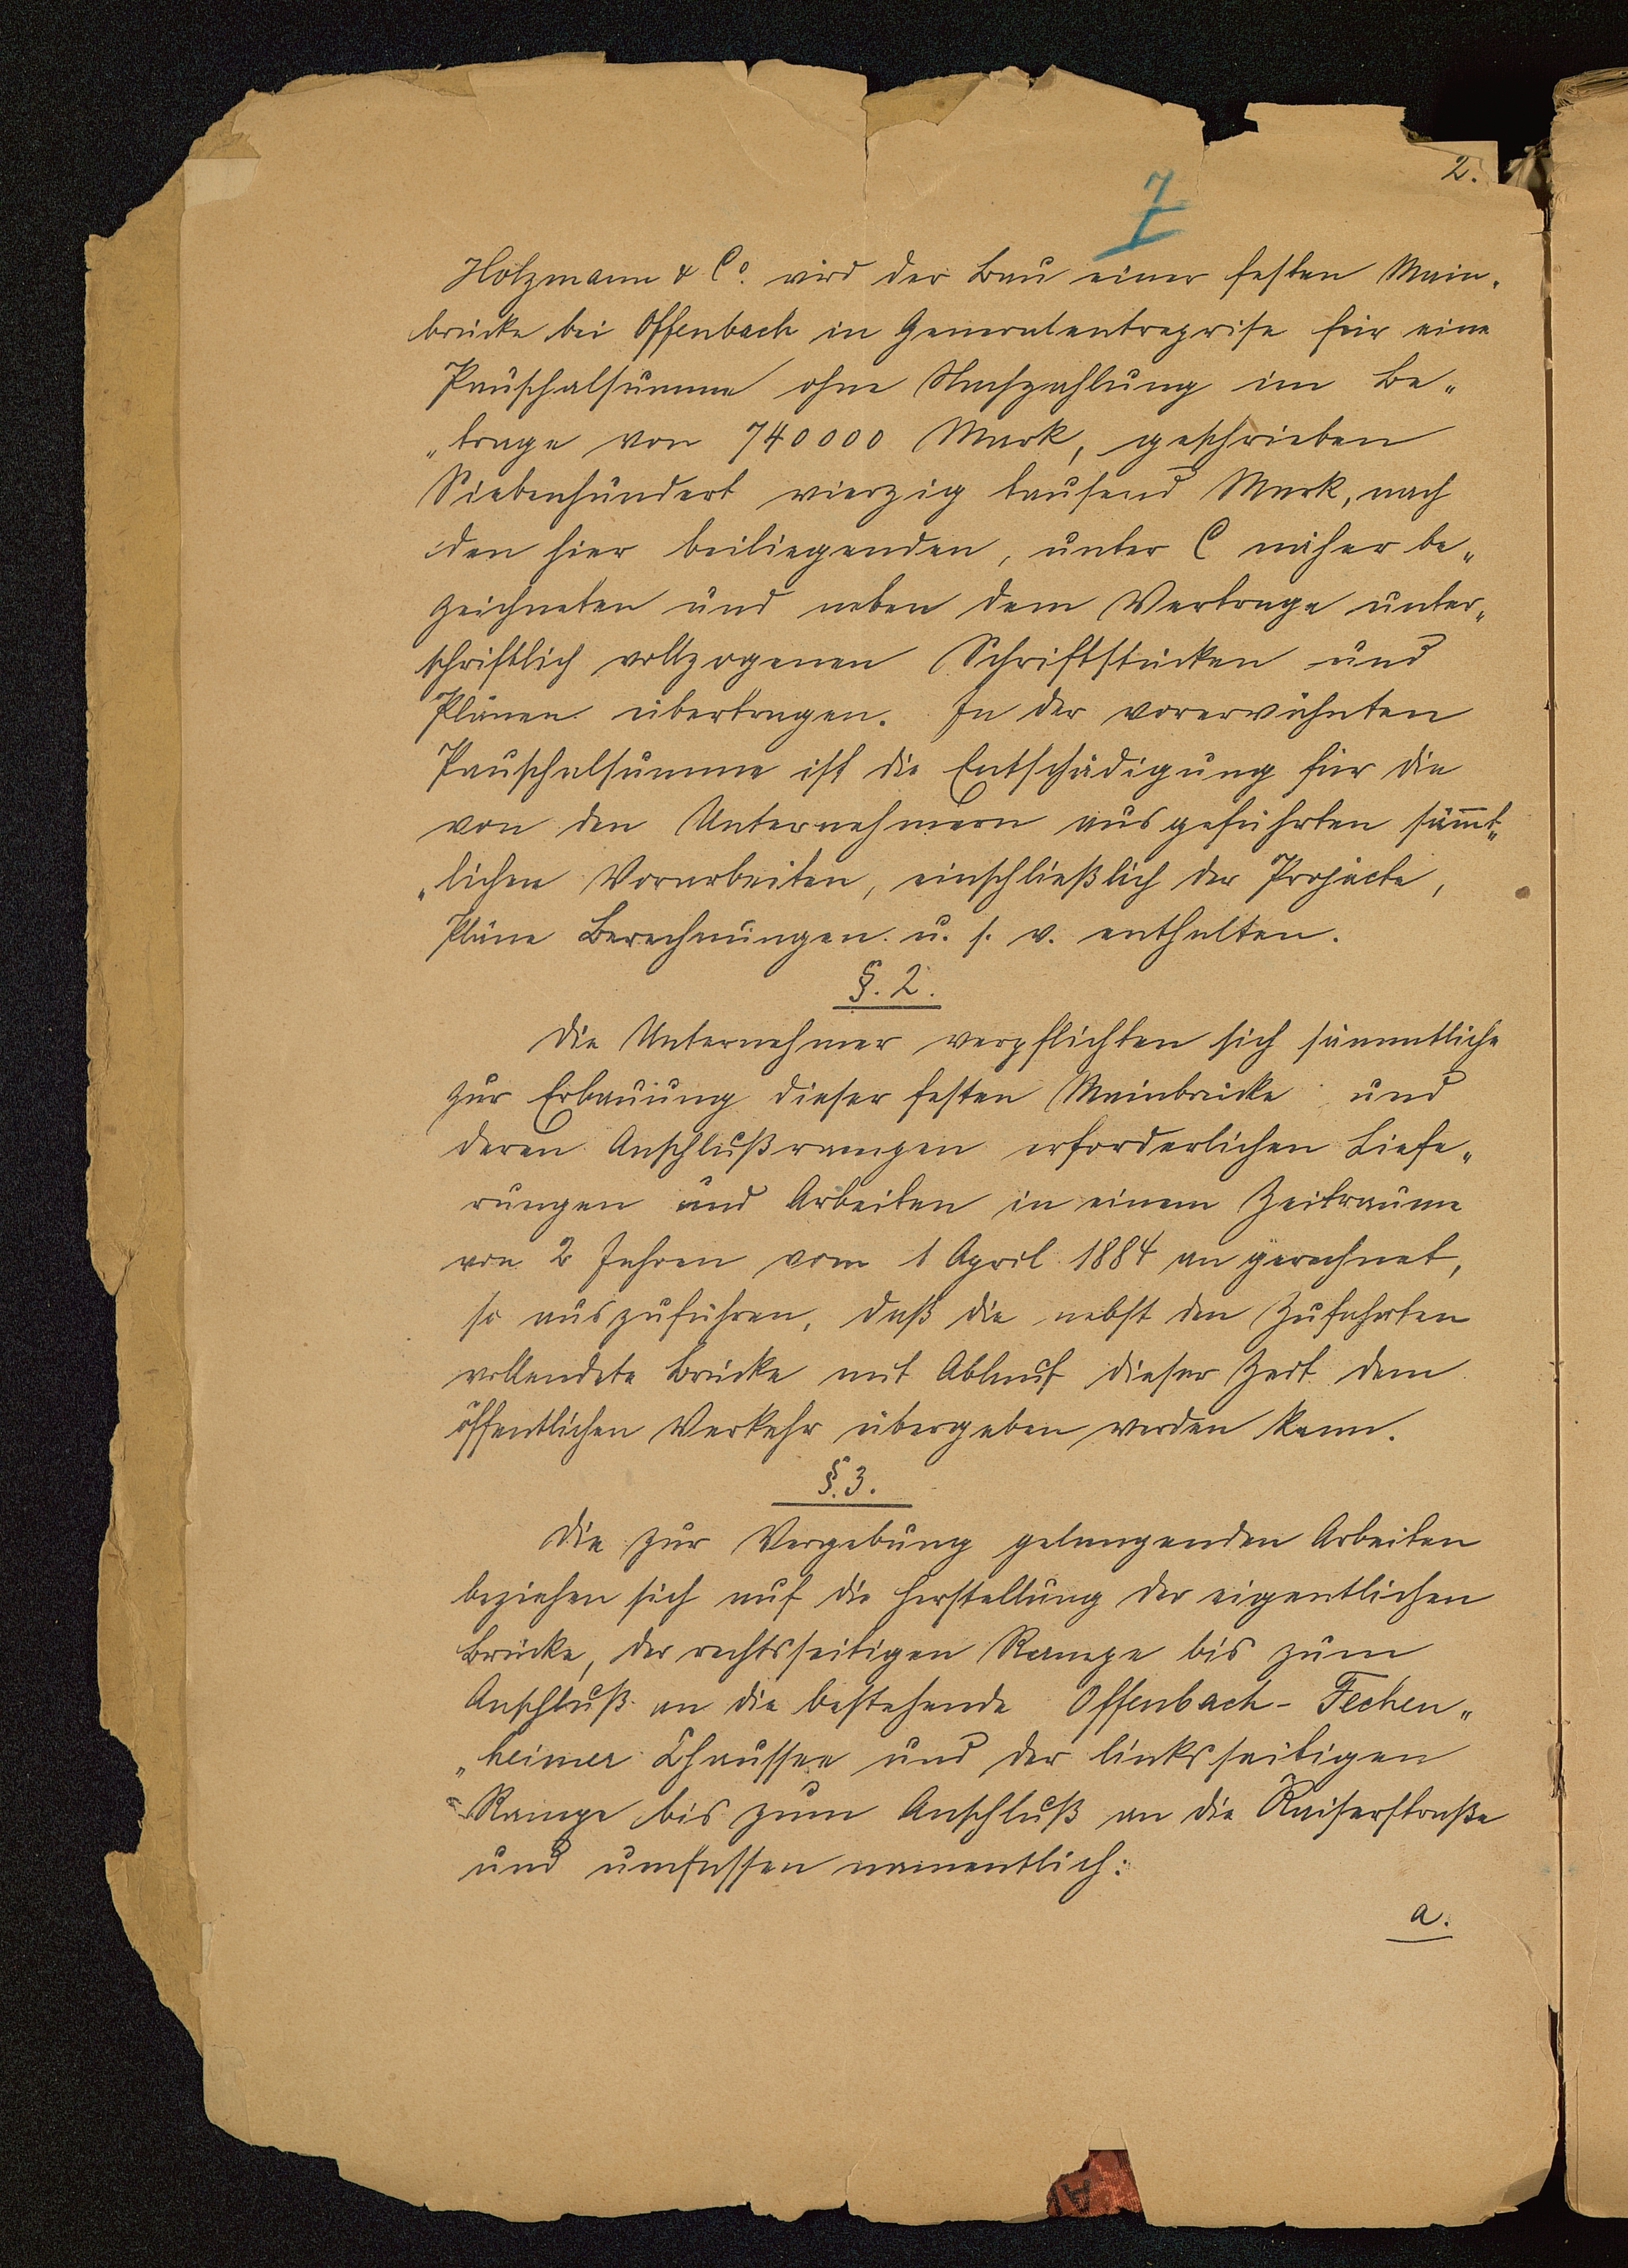 2.
7
Holzmann & Co. wird der Bau einer festen Main-
brücke bei Offenbach in Generalentreprise für eine
Pauschalsumme ohne Nachzahlung im Be„
„trage von 740000 Mark, geschrieben
Siebenhundert vierzig tausend Mark, nach
den hier beiliegenden, unter C näher be„
zeichneten und neben dem Vertrage unter„
schriftlich vollzogenen Schriftstücken und
Plänen übertragen. In der vorerwähnten
Pauschalsumme ist die Entschädigung für die
von den Unternehmern ausgeführten säm̅t„
„lichen Vorarbeiten, einschließlich der Projecte,
Pläne Berechnungen u. s. w. enthalten.
§. 2.
Die Unternehmer verpflichten sich sämmtliche
zur Erbauung dieser festen Mainbrücke und
deren Anschlußrampen erforderlichen Liefe„
rungen und Arbeiten in einem Zeitraume
von 2 Jahren vom 1 April 1884 an gerechnet,
so auszuführen, daß die nebst den Zufahrten
vollendete Brücke mit Ablauf dieser Zeit dem
öffentlichen Verkehr übergeben werden kann.
§. 3.
Die zur Vergebung gelangenden Arbeiten
beziehen sich auf die Herstellung der eigentlichen
Brücke, der rechtsseitigen Rampe bis zum
Anschluß an die bestehende Offenbach-Fechen„
„heimer Chaussee und der linksseitigen
Rampe bis zum Anschluß an die Kaiserstraße
und umfassen namentlich:
a.